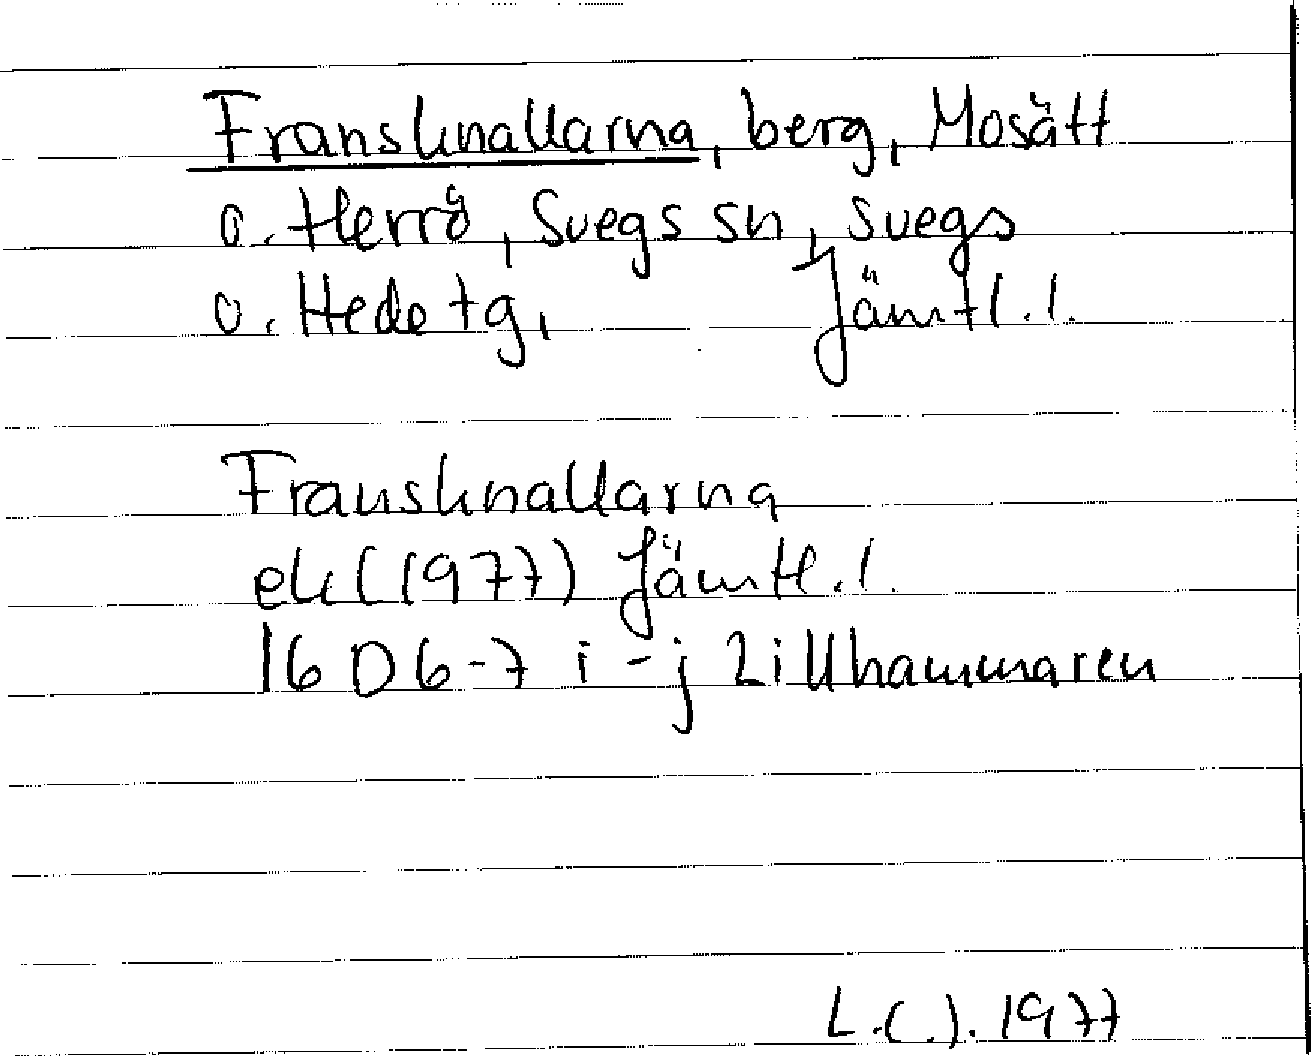 Fransknallarna, berg, Mosätt
o. Herrö, Svegs sn, Svegs
o. Hede tg, Jämtl. l.
Fransknallarna
ek (1977) Jämtl. l.
16 D 6-7 i-j Lillhammaren
L.C.J. 1977